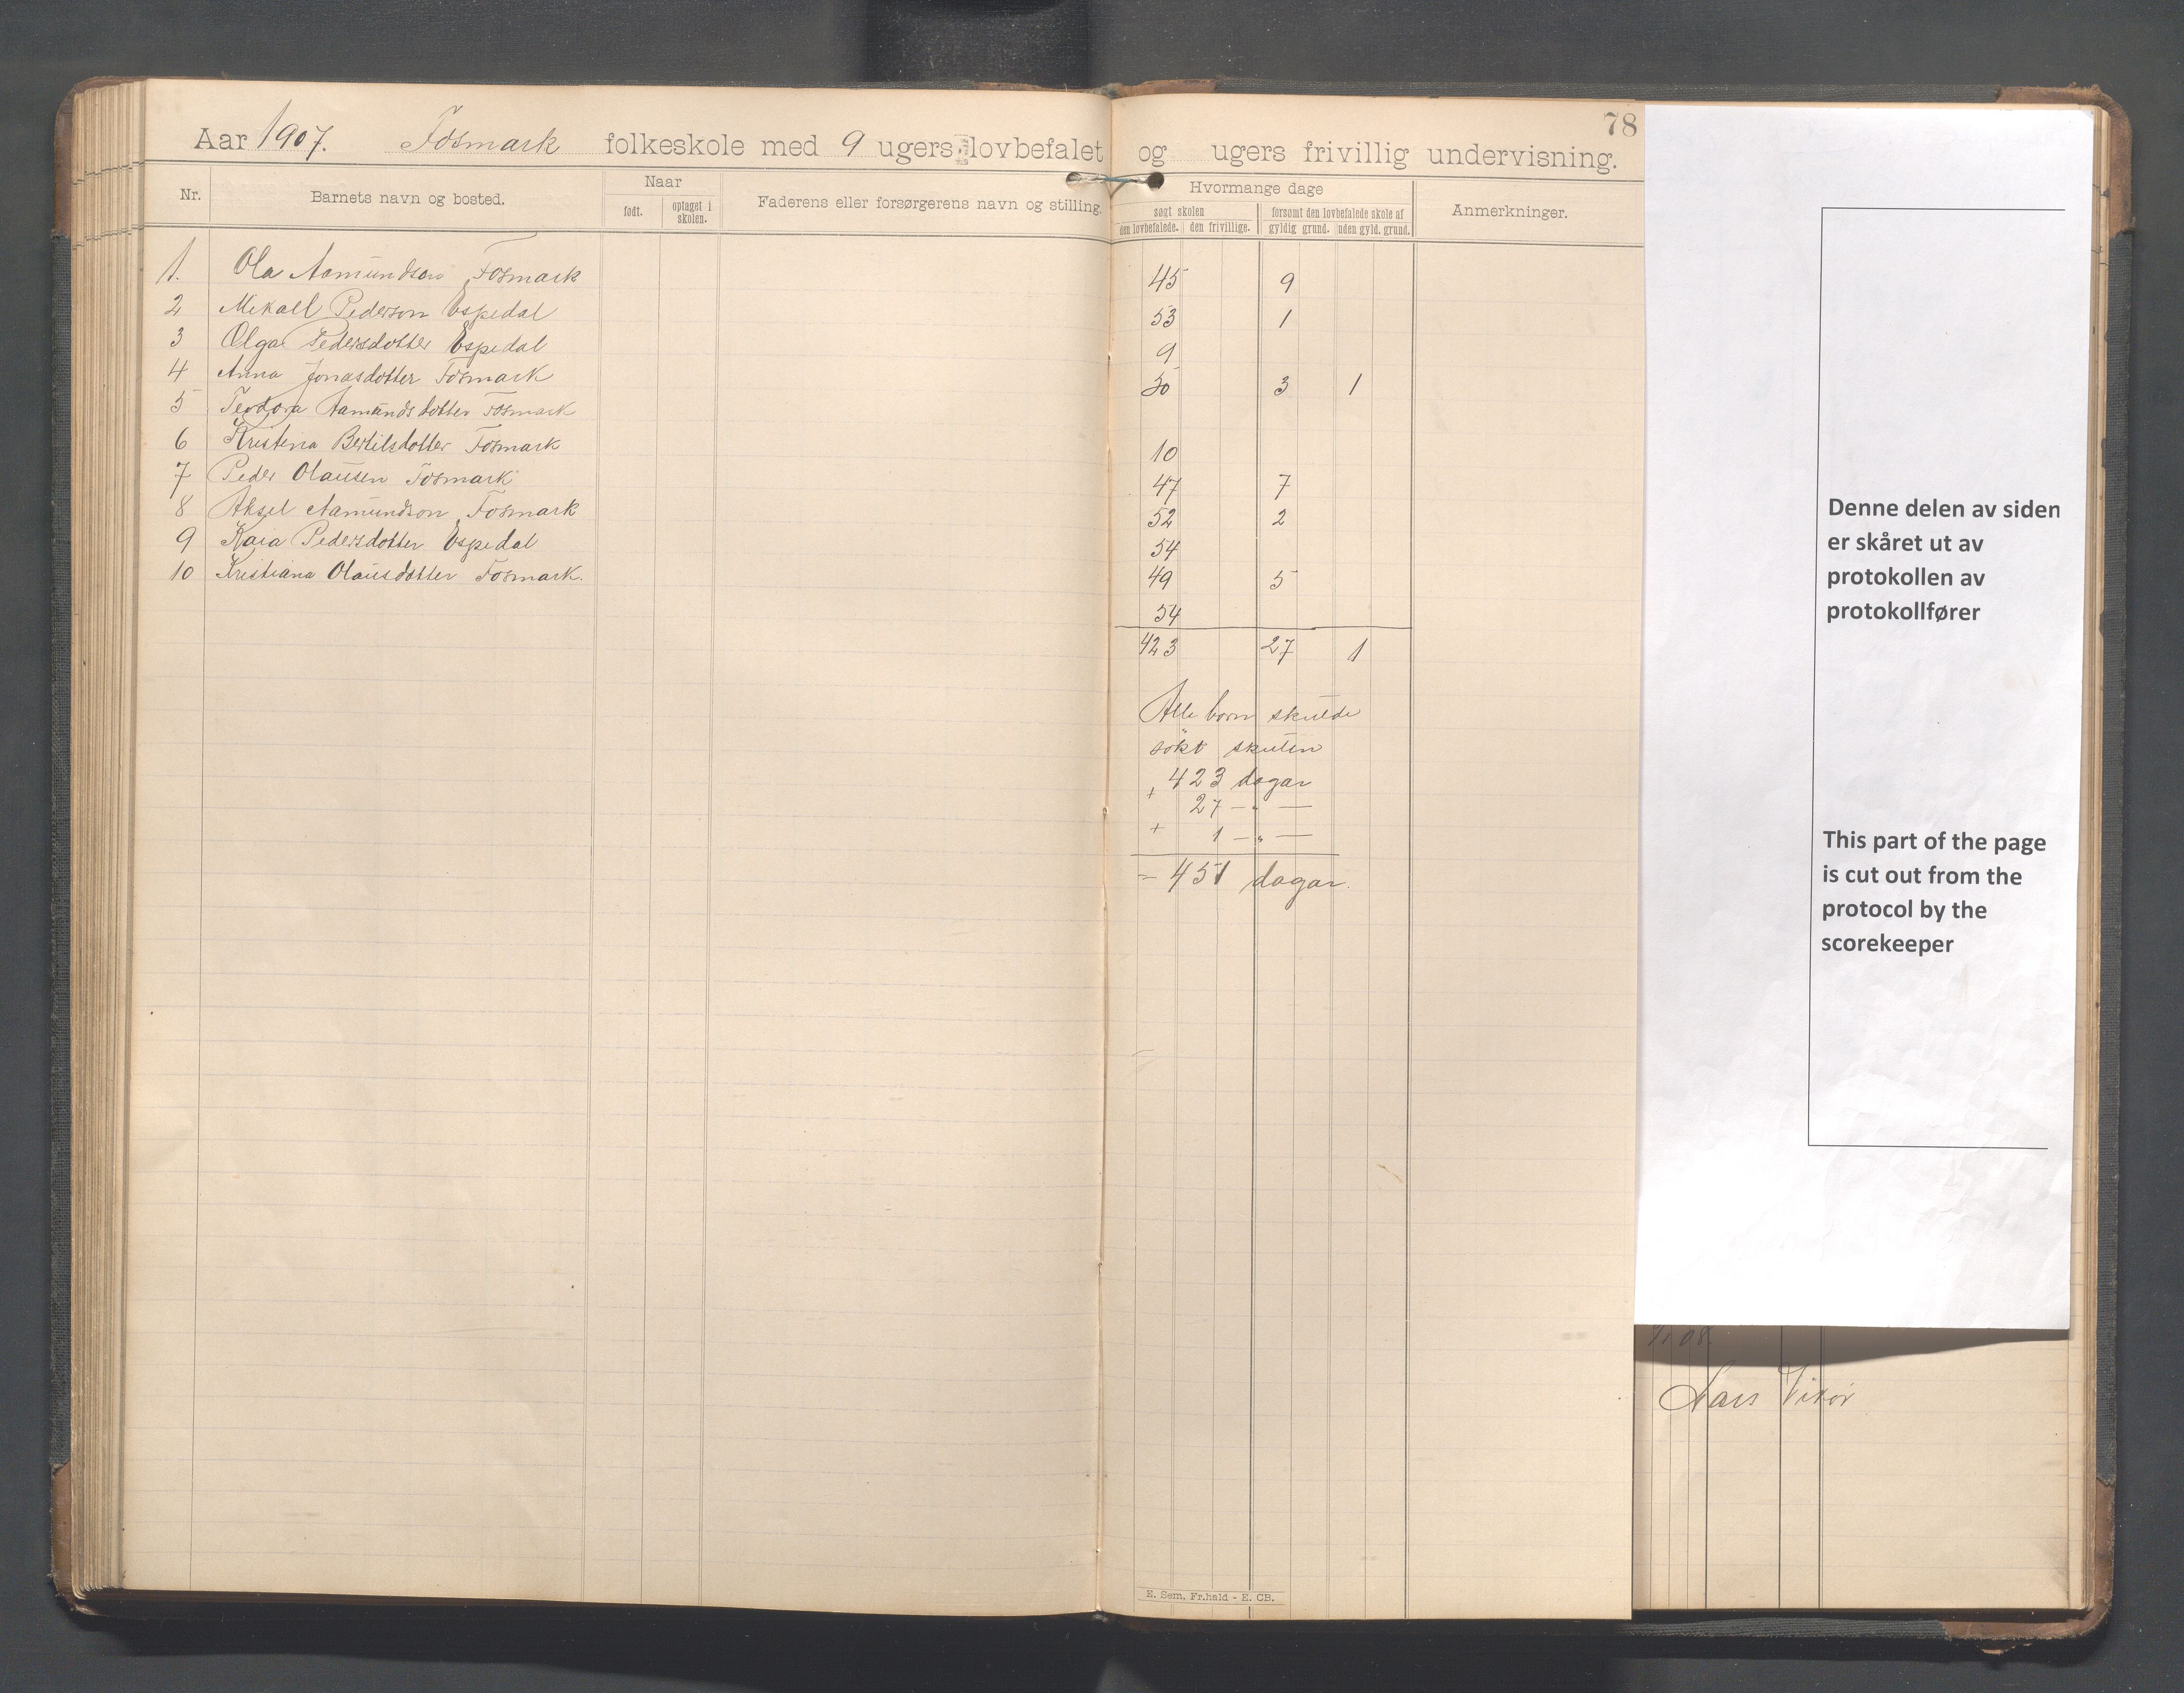 78
Aar 1907. Fosmark folkeskole med 9 ugers lovbefalet og ugers frivillig undervisning.
Nr. Barnets navn og bosted. Naar født. optaget i skolen. Faderens eller forsørgerens navn og stilling. Hvormange dage søgt skolen den lovbefalede. den frivillige. forsømt den lovbefalede skole af gyldig grund. uden gyld. grund. Anmerkninger.
1. Ola Aamundson Fosmark 45 9
2 Mikall Pederson Espedal 53 1
3 Olga Pedersdotter Espedal 9
4 Anna Jonasdotter Fosmark 50 3 1
5 Teodora Aamundsdotter Fosmark
6 Kristena Bertilsdotter Fosmark 10
7 Peder Olausen Fosmark 47 7
8 Aksel Aamundson Fosmark 52 2
9 Kaia Pedersdotter Espedal 54
10 Kristiana Olausdotter Fosmark. 49 5
54
423 27 1
Alle born skulde
søkt skulen
423 dagar
+ 27 — " —
+ 1 — " —
= 451 dagar.
E. Sem, Fr.hald - E. CB.
Denne delen av siden
er skåret ut av
protokollen av
protokollfører
This part of the page
is cut out from the
protocol by the
scorekeeper
08.
Lars Vikør